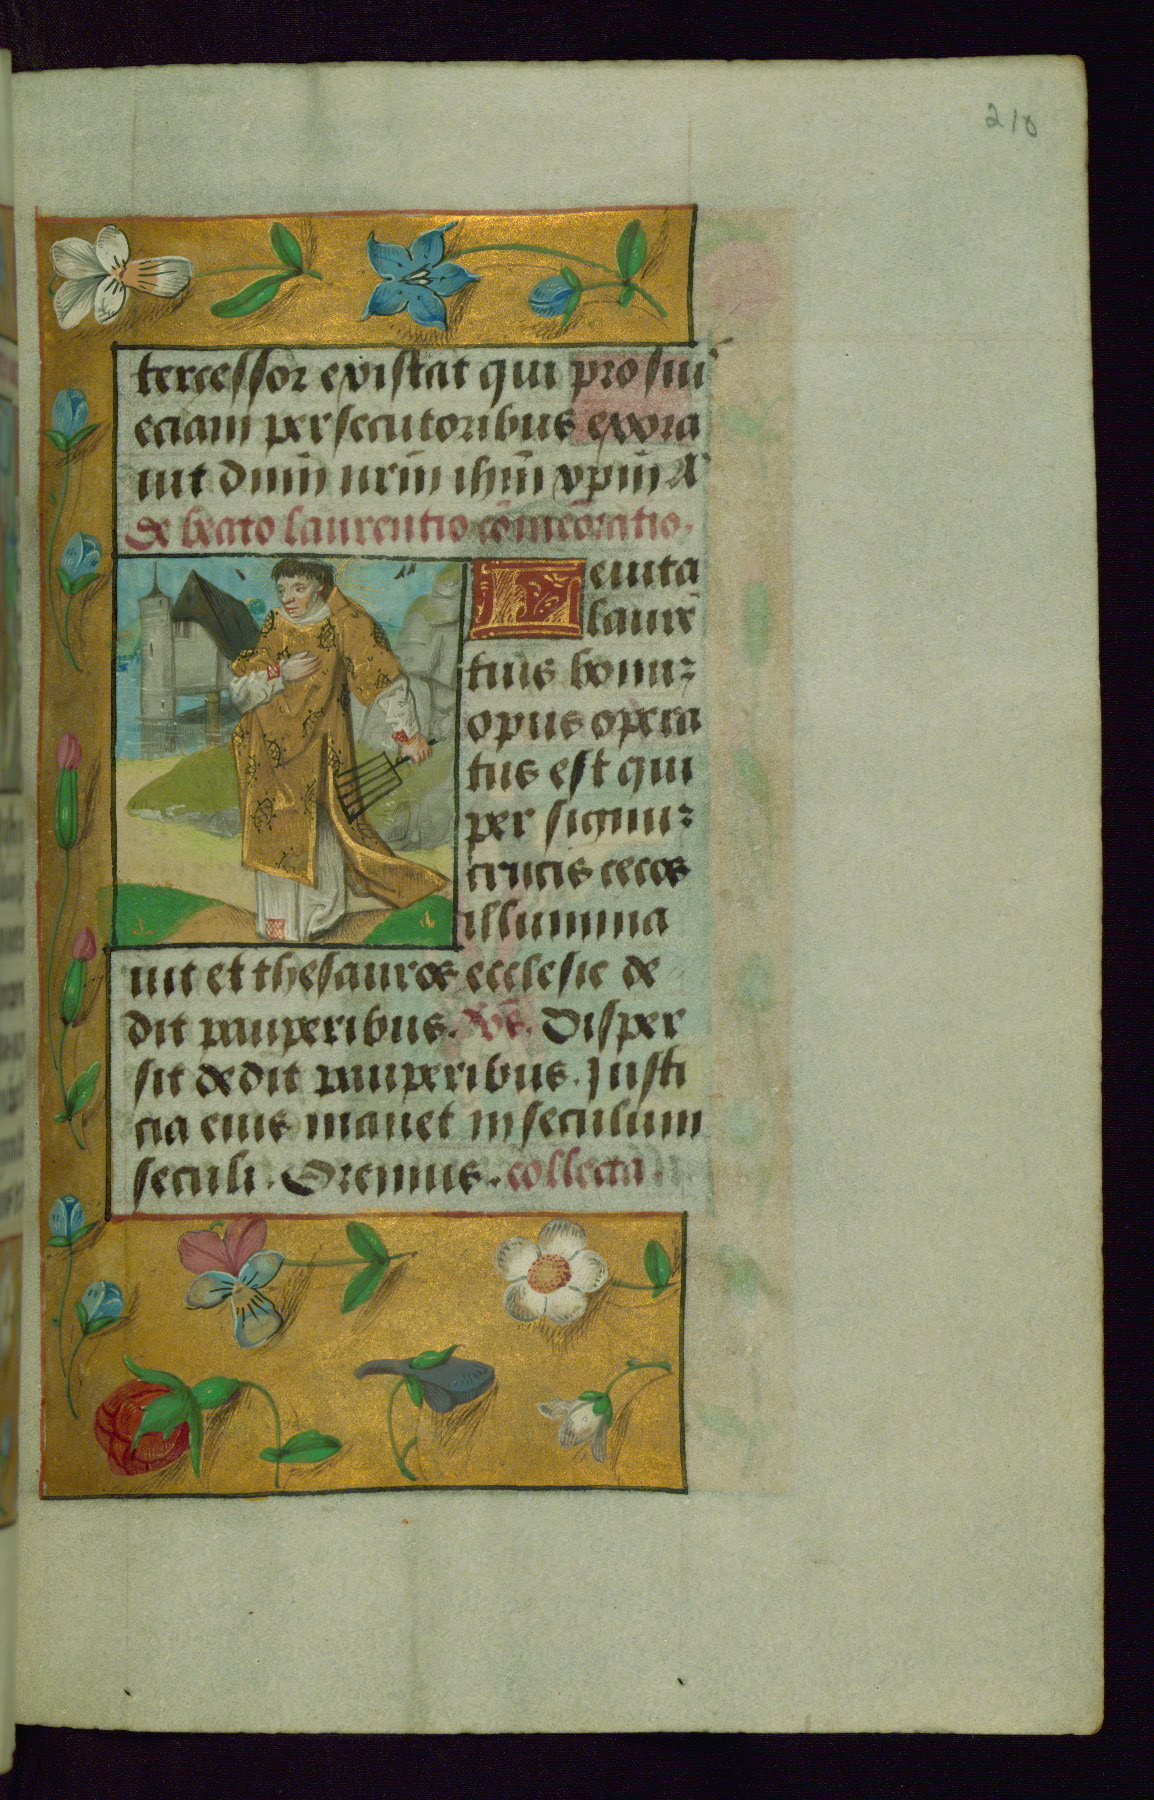 210
tercessor existat qui pro suis
eciam persecutoribus exora
uit dnm̄ nrm̄ ihm̄ xpm̄ A
de beato laurentio cōmeōratio.
Leuita
laurē
tius bonū
opus opera
tus est qui
per signū
crucis cecos
illumina
uit et thesauros ecclesie de
dit pauperibus. v̄s. Disper
sit dedit pauperibus. Justi
cia eius manet in seculum
seculi. Oremus. collecta.